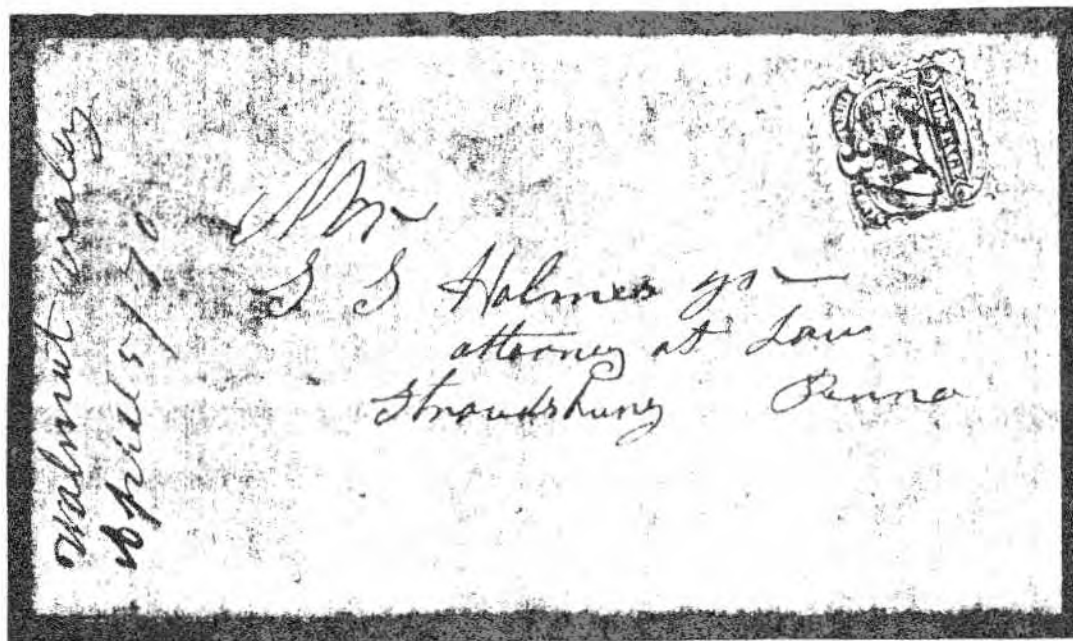 Walnut Valley
April 5/70
Mr
S S Holmes Jr
attorney at Law
Stroudsburg Penna